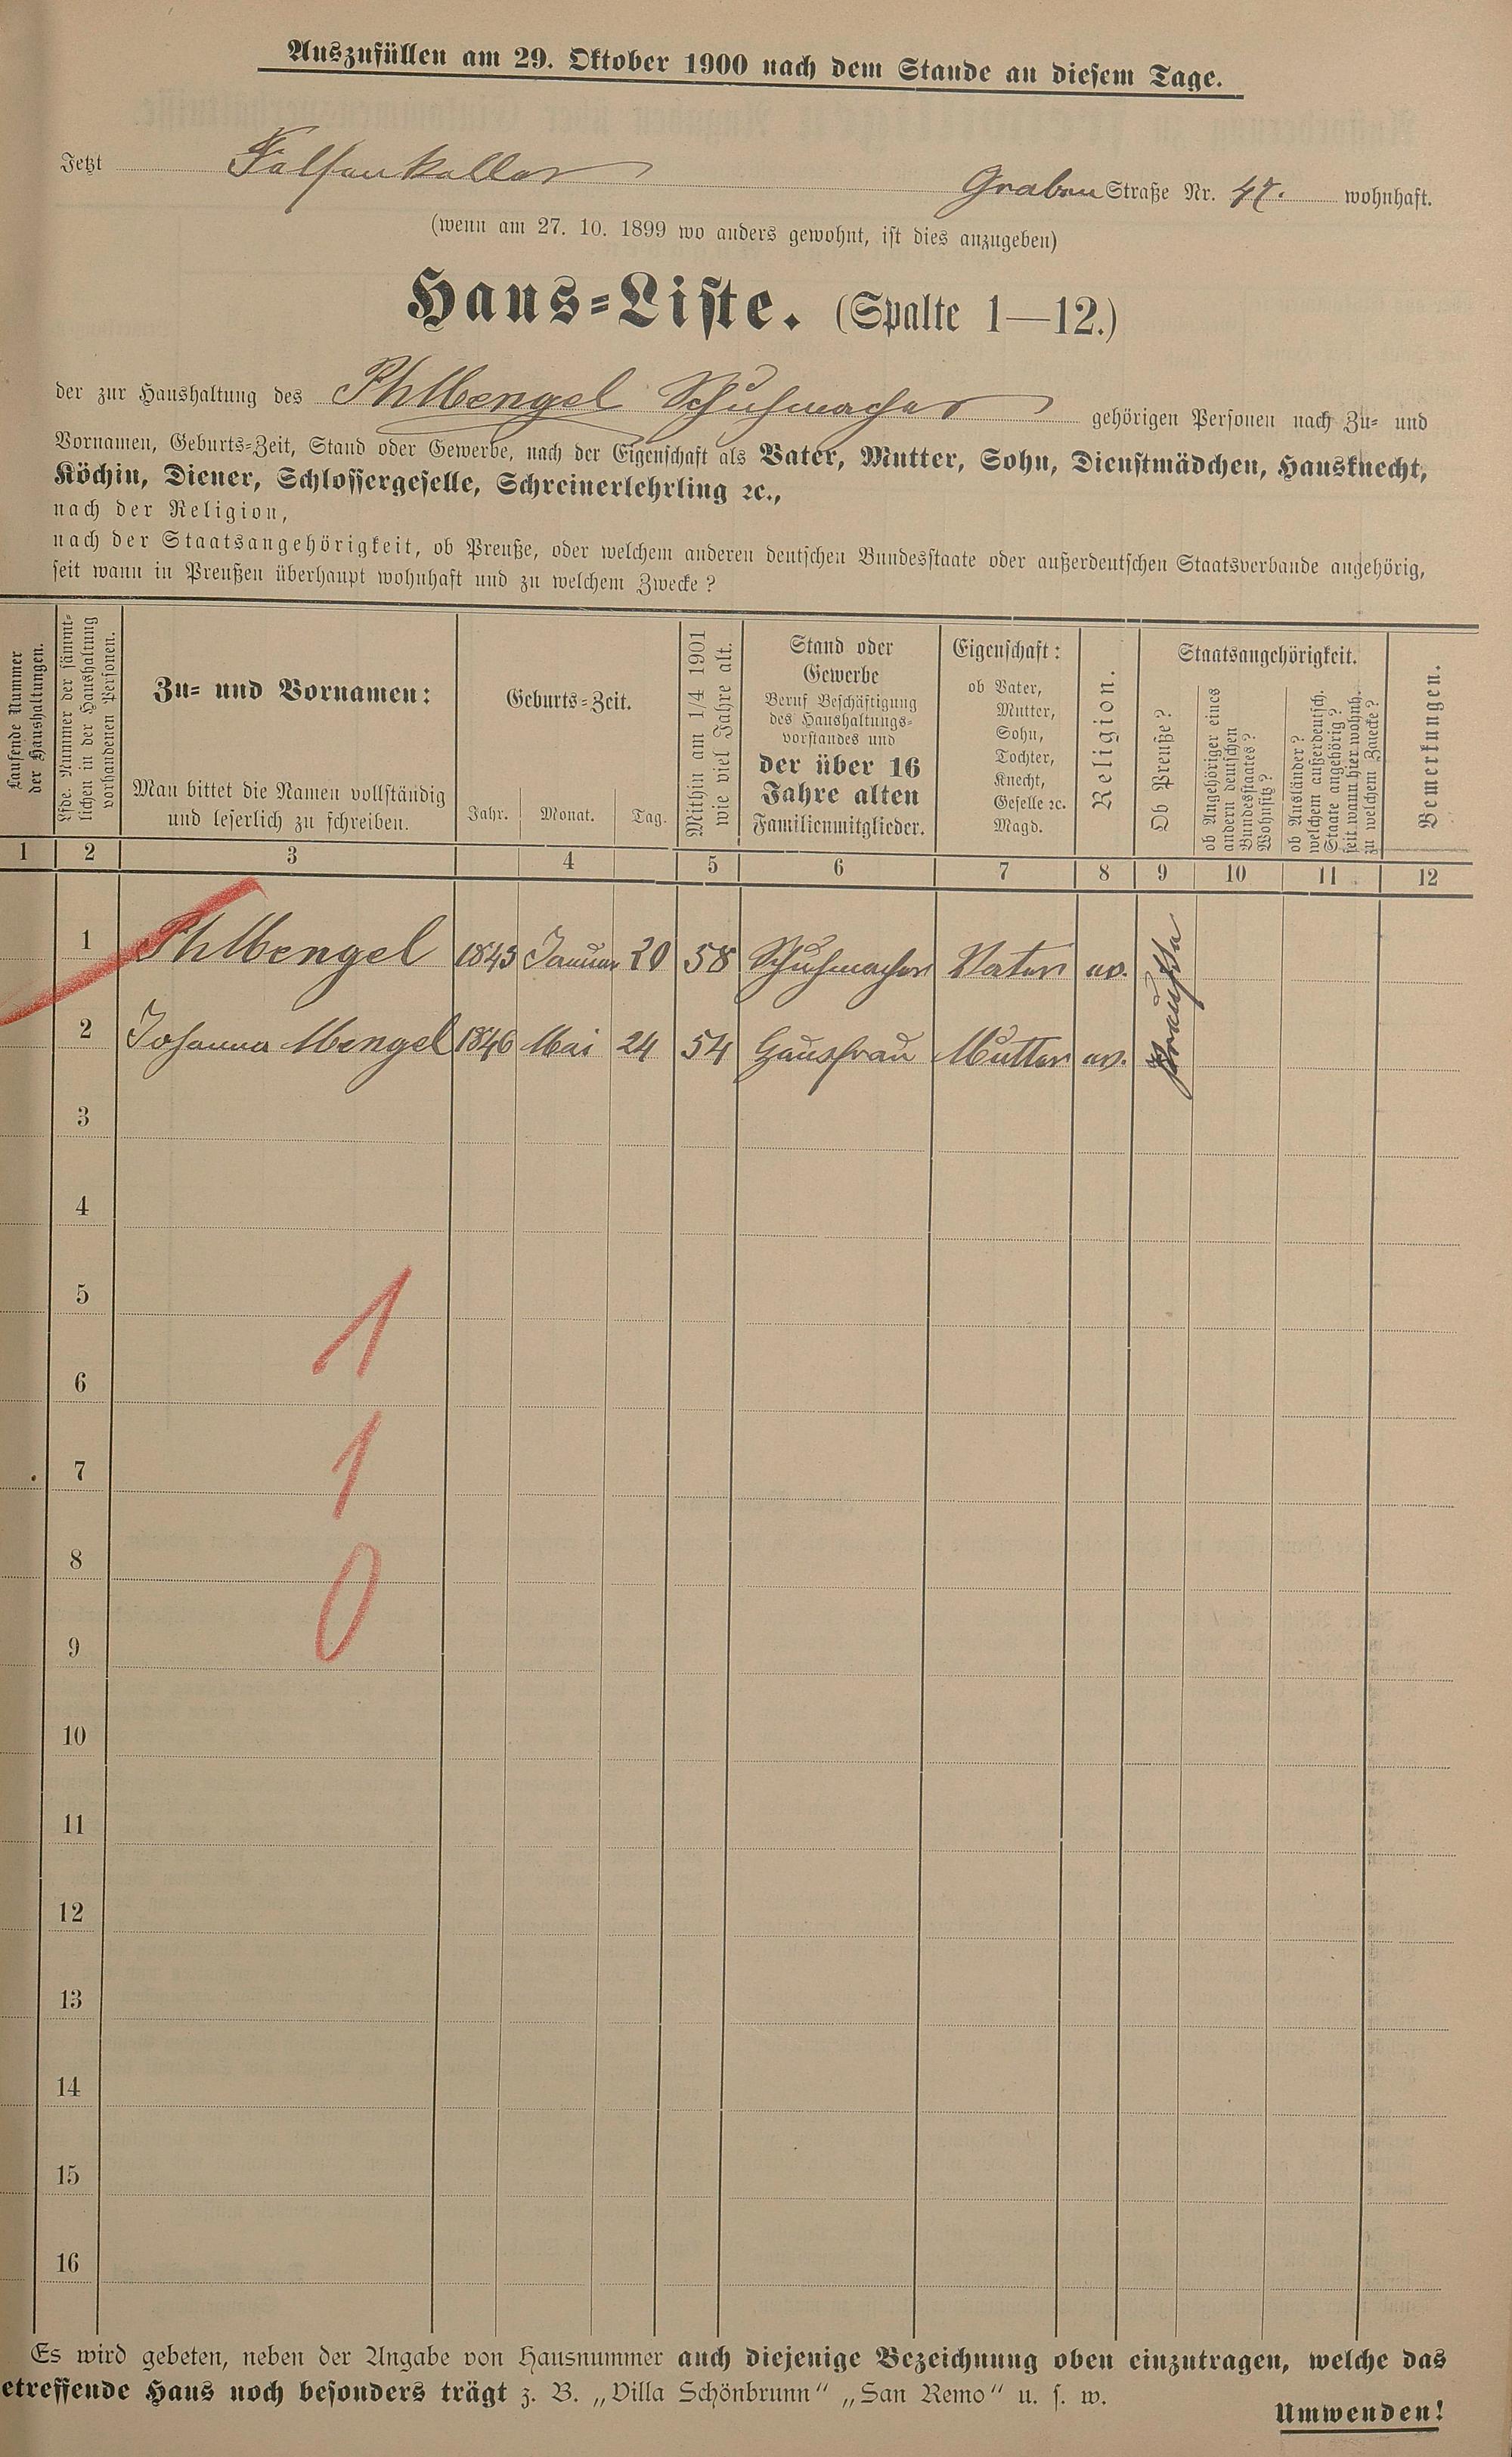 Auszufüllen am 29. Oktober 1900 nach dem Stande an diesem Tage.
Jetzt Felsenkeller Graben Straße Nr. 47. wohnhaft.
(wenn am 27. 10. 1899 wo anders gewohnt, ist dies anzugeben)
Haus-Liste. (Spalte 1—12.)
der zur Haushaltung des Ph Mengel Schuhmacher gehörigen Personen nach Zu- und
Vornamen, Geburts-Zeit, Stand oder Gewerbe, nach der Eigenschaft als Vater, Mutter, Sohn, Dienstmädchen, Hausknecht,
Köchin, Diener, Schlossergeselle, Schreinerlehrling ꝛc.,
nach der Religion,
nach der Staatsangehörigkeit, ob Preuße, oder welchem anderen deutschen Bundesstaate oder außerdeutschen Staatsverbande angehörig,
seit wann in Preußen überhaupt wohnhaft und zu welchem Zwecke?
Laufende Nummer
der Haushaltungen.
Lfde. Nummer der sämmt-
lichen in der Haushaltung
vorhandenen Personen.
Zu- und Vornamen:
Man bittet die Namen vollständig
und leserlich zu schreiben.
Geburts-Zeit.
Jahr. Monat. Tag.
Mithin am 1/4 1901
wie viel Jahre alt.
Stand oder
Gewerbe
Beruf Beschäftigung
des Haushaltungs-
vorstandes und
der über 16
Jahre alten
Familienmitglieder.
Eigenschaft:
ob Vater,
Mutter,
Sohn,
Tochter,
Knecht,
Geselle ꝛc.
Magd.
Religion.
Staatsangehörigkeit.
Ob Preuße?
ob Angehöriger eines
andern deutschen
Bundesstaates?
Wohnsitz?
ob Ausländer?
welchem außerdeutsch.
Staate angehörig?
seit wann hier wohnh.
zu welchem Zwecke?
Bemerkungen.
1 2 3 4 5 6 7 8 9 10 11 12
1 Ph Mengel 1843 Januar 20 58 Schuhmacher Vater ev. Preußen
2 Johanna Mengel 1846 Mai 24 54 Hausfrau Mutter ev.
3
4
5
1
6
7
1
8
0
9
10
11
12
13
14
15
16
Es wird gebeten, neben der Angabe von Hausnummer auch diejenige Bezeichnung oben einzutragen, welche das
etreffende Haus noch besonders trägt z. B. „Villa Schönbrunn“ „San Remo“ u. s. w.
Umwenden!